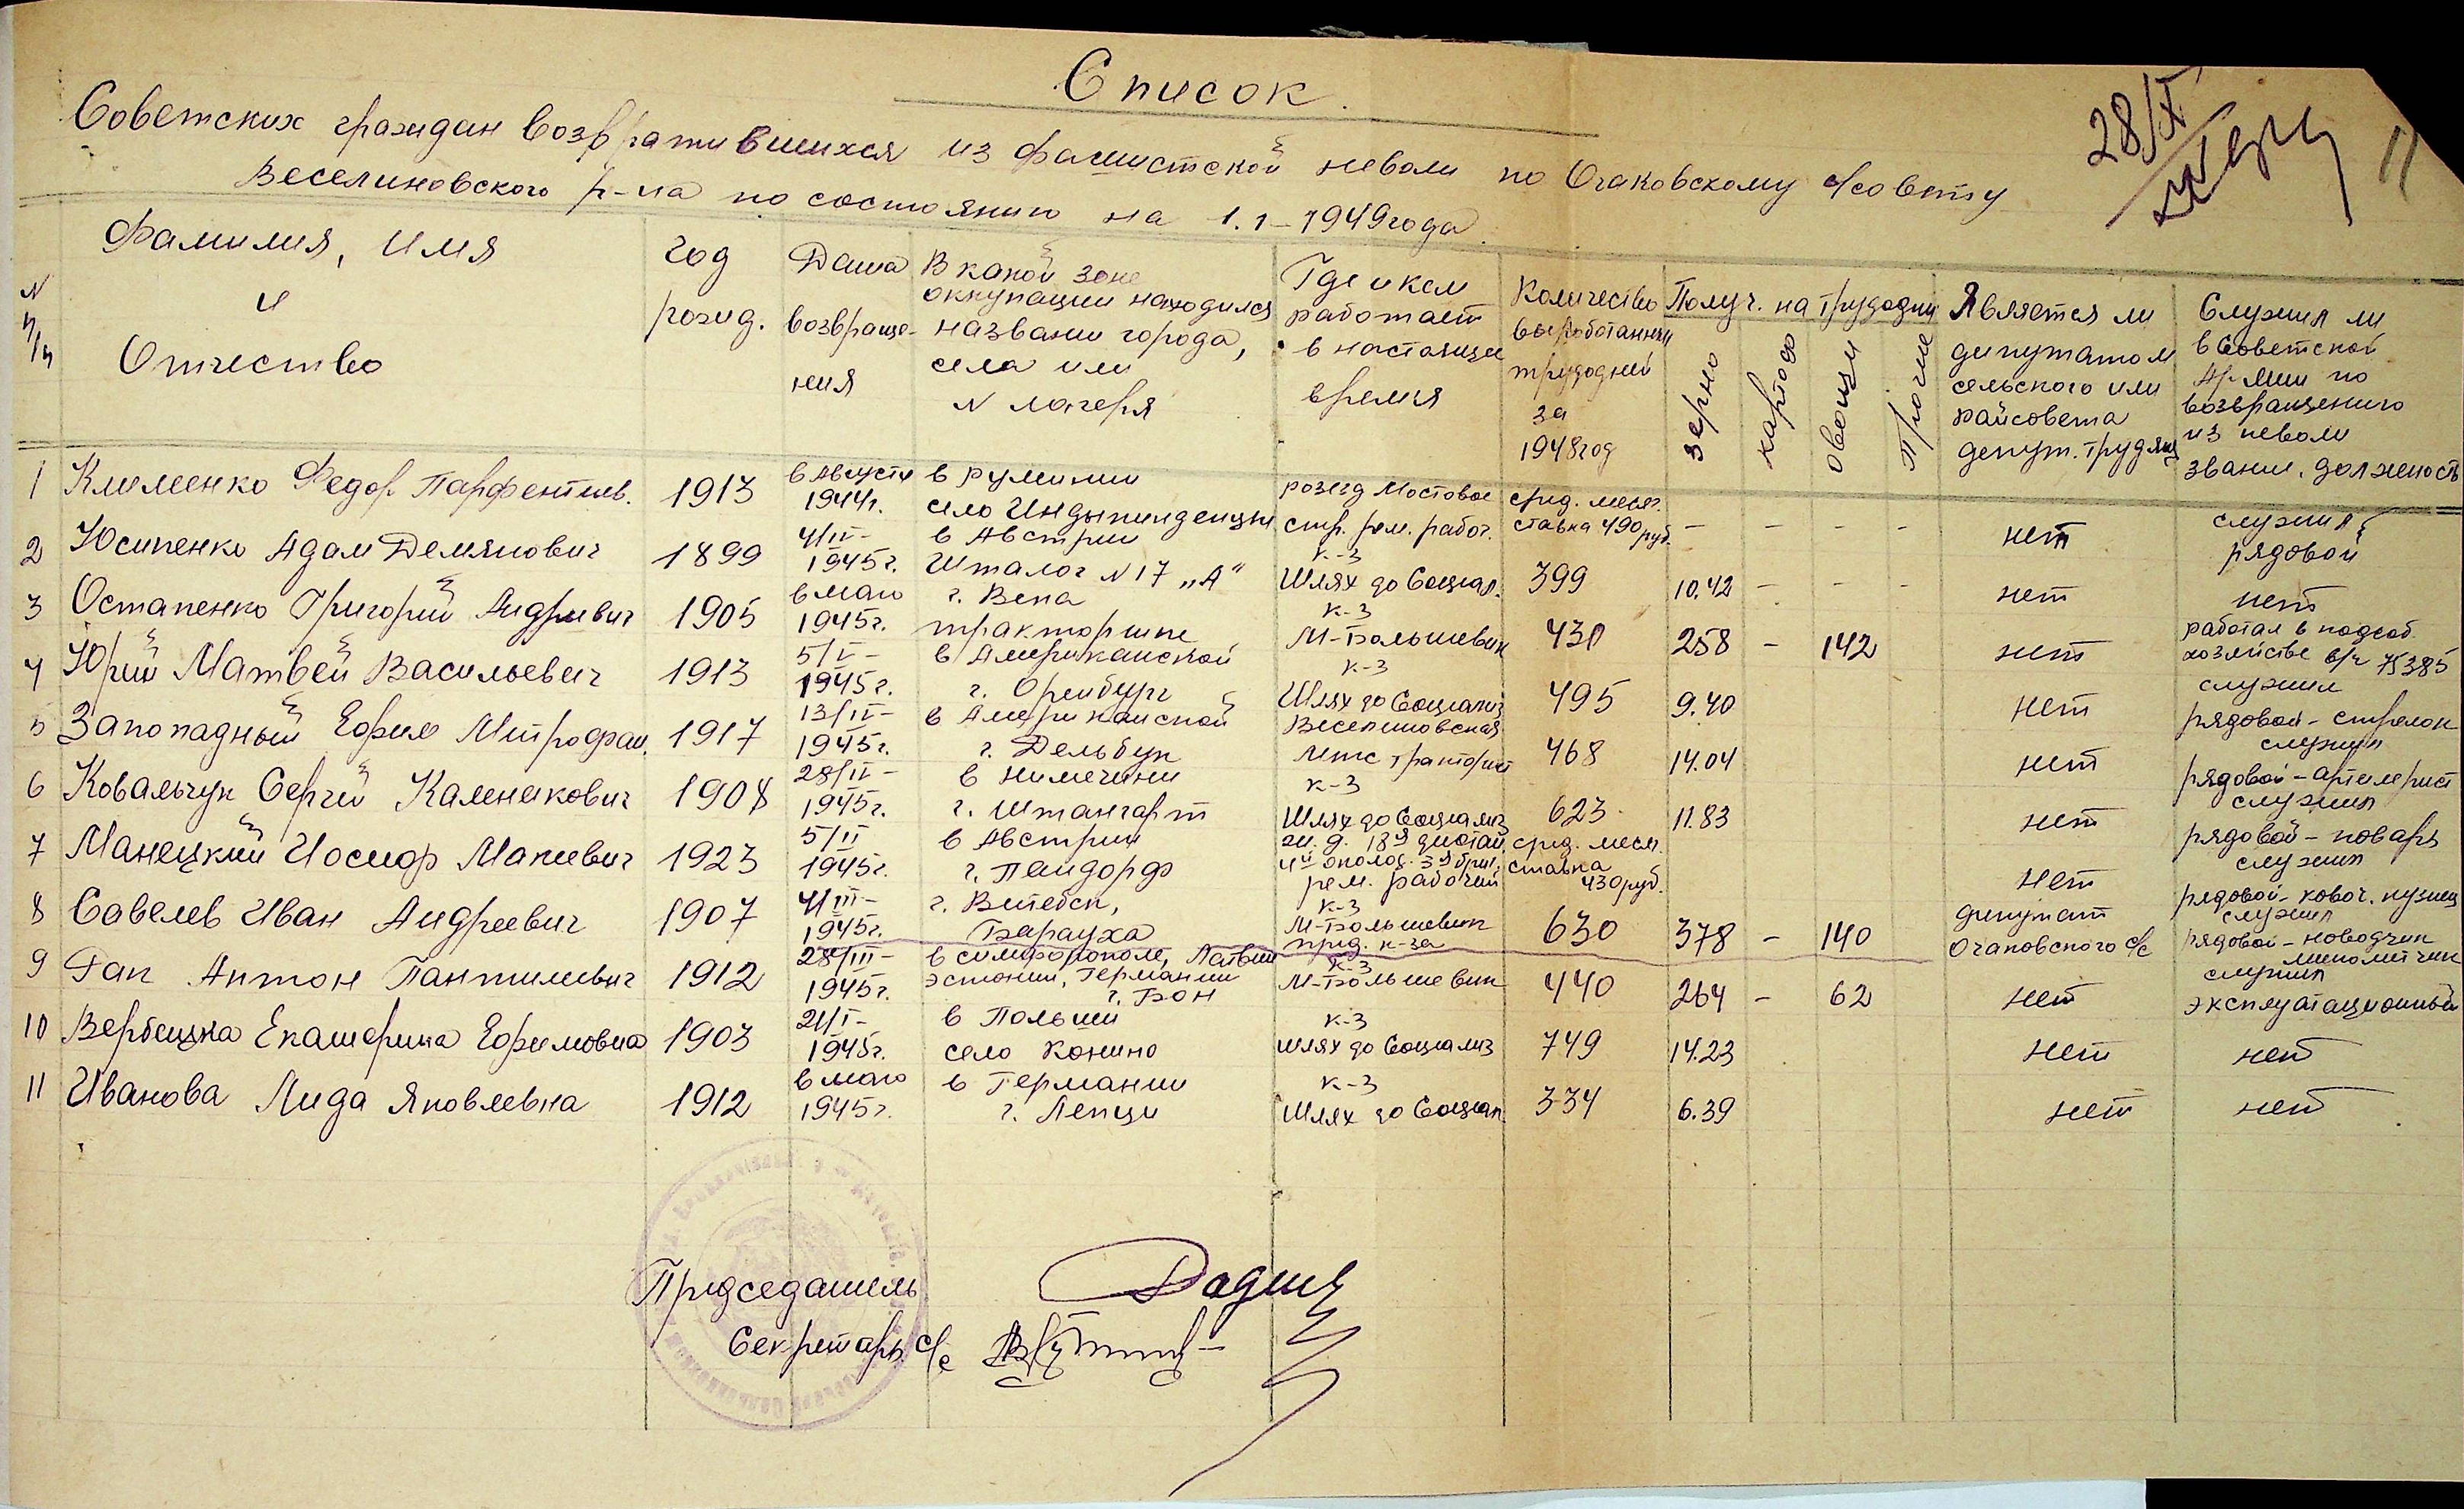 Список.
Советских граждан возвратившихся из фашистской неволи по Очаковскому с/совету
Веселиновского р-на по состоянию на 1.1-1949 года.
28/IX
11
N п/п
Фамилия, имя и Отчество
год рожд.
Дата возвраще-ния
В какой зоне оккупации находился названи города, села или N лагеря
Где и кем работает в настоящее время
Количество выработанных трудодней за 1948 год
Получ. на трудодни
зерно
картоф
овощи
Прочие
Является ли депутатом сельского или райсовета депут. трудящ
Служил ли в Советской Армии по возвращению из неволи звание, должность
1 Клименко Федор Парфентиев. 1913 в Августе 1944г. в румынии село Индыпинденцие розезд Мостовое стр. рем. рабоч. сред. месяч. ставка 490 руб. - - - - нет служил рядовой
2 Юсипенко Адам Демянович 1899 4/IV-1945г. в Австрии Шталог N 17 „А“ к-з Шлях до Социал. 399 10.42 - - - нет нет
3 Остапенко Григорий Андриевич 1905 в маю 1945г. г. Вена тракторише к-з М-Большевик 430 258 - 142 нет работал в подсоб. хозяйстве в/ч 75385
4 Юрий Матвей Васильевич 1913 5/V-1945г. в Американской г. Оренбург к-з Шлях до Социализ 495 9.40 нет служил рядовой - стрелок
5 Западный Ефим Митрофан. 1917 13/IV-1945г. в Американской г. Дельбук Веселиновская мтс тракторист 468 14.04 нет служил рядовой - артилерист
6 Ковальчук Сергей Каленикович 1908 28/IV-1945г. в нимечини г. Штангарт к-з Шлях до Социализ 623 11.83 нет служил рядовой - поварь
7 Манецкий Иосиф Макиевич 1923 5/II 1945г. в Австрии г. Пандорф ж. д. 18я дистан 4й околод. 3я бриг. рем. рабочий сред. месяч. ставка 430 руб. нет служил рядовой - ковоч. кузнец
8 Савелев Иван Андреевич 1907 4/III-1945г. г. Витебск, Барауха к-з М-Большевик пред. к-за 630 378 - 140 депутат Очаковского с/с служил рядовой - новодчик минометчик
9 Гап Антон Пантилиевич 1912 28/III-1945г. в симфорополе, Латвии эстонии, Германии г. Бон к-з М-Большевик 440 264 - 62 нет служил эксплуатационный
10 Вербецка Екатерина Ефимовна 1903 21/I-1945г. в Польши село Конино к-з Шлях до Социализ 749 14.23 нет нет
11 Иванова Лида Яковлевна 1912 в маю 1945г. в Германии г. Лепци к-з Шлях до Социал. 334 6.39 нет нет
Председатель
Секретарь с/с